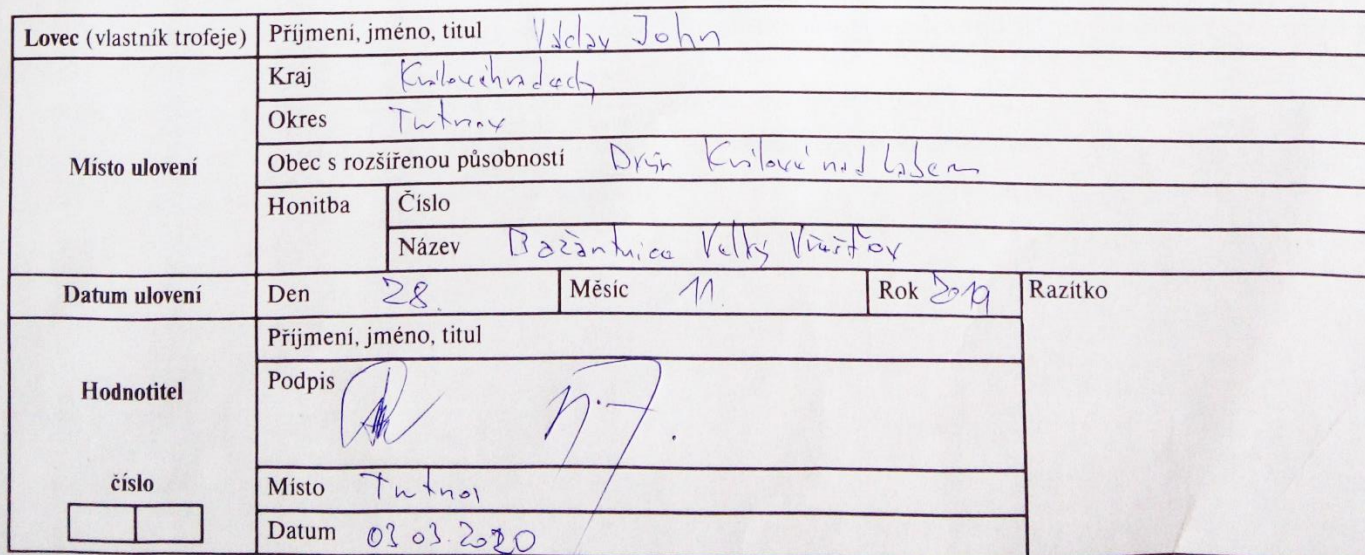 Lovec (vlastník trofeje) Příjmení, jméno, titul Václav John
Kraj Královéhradecký
Okres Trutnov
Místo ulovení
Obec s rozšířenou působností Dvůr Králové nad Labem
Honitba Číslo
Název Bažantnice Velký Vřešťov
Datum ulovení Den 28. Měsíc 11. Rok 2019 Razítko
Příjmení, jméno, titul
Hodnotitel
Podpis
číslo
Místo Trutnov
Datum 03 03. 2020